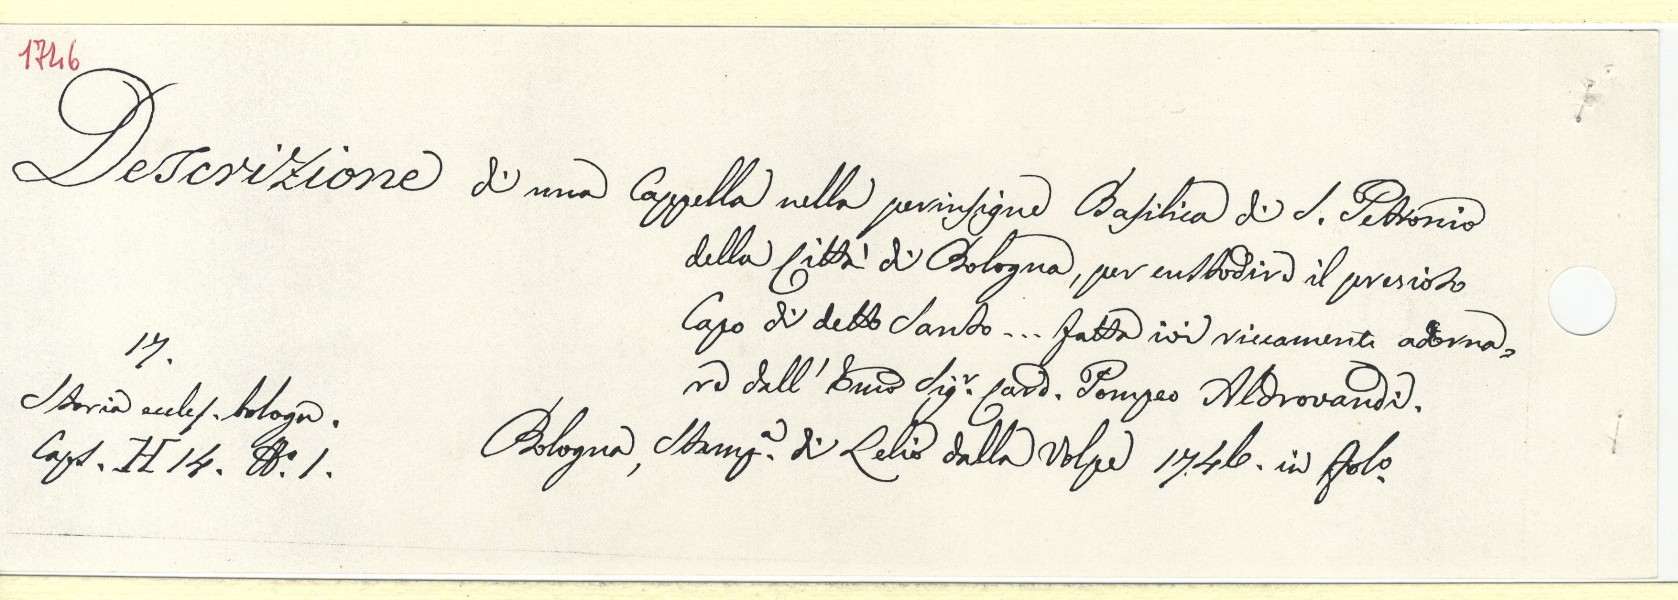 1746
Descrizione di una Cappella nella perinsigne Basilica di S. Petronio
della Città di Bologna, per custodire il prezioso
Capo di detto Santo ... fatta ivi riccamente adorna=
re dall' Emo Sigr. Card. Pompeo Aldrovandi.
Bologna, Stampa. di Lelio dalla Volpe 1746. in folo.
17.
Storia eccles. bologn.
Caps. H 14. No. 1.